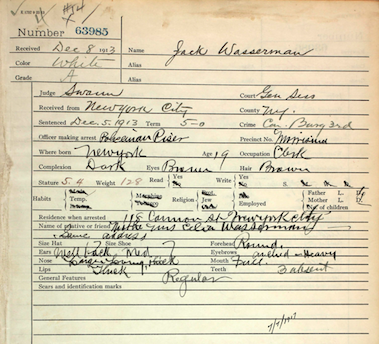 #54
Number 63985
Received Dec 8 1913 Name Jack Wasserman
Color White Alias
Grade A Alias
Judge Swann Court Gen Sess
Received from New York City County N.Y.
Sentenced Dec 5, 1913 Term 5-0 Crime Burg 3rd
Officer making arrest Precinct No.
Where born New York Age 19 Occupation Clerk
Complexion Dark Eyes Brown Hair Brown
Stature 5.4 Weight 128 Read Yes No Write Yes No
Habits Religion Employed Father L. Mother L. of children
Residence when arrested 118 Cannon St New York City
Name of relative or friend Mother Mrs Celia Wasserman
Same address
Size Hat 7 Size Shoe 7 Forehead Round
Ears Well back Med Eyebrows arched - Heavy
Nose Mouth Full
Lips Thick Teeth 3 absent
General Features Regular
Scars and identification marks